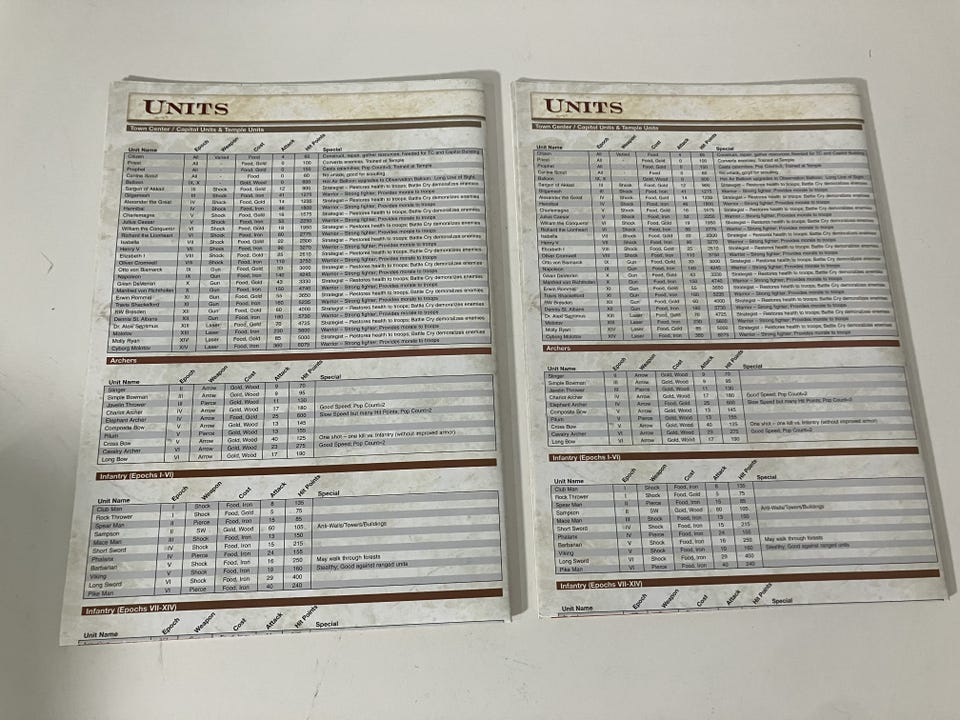 UNITS
Town Center / Capitol Units & Temple Units
Epoch Weapon Cost Attack Hit Points Special
Citizen All Varied Food 4
Priest All - Food, Gold 0 100 Converts enemies, Trained at Temple
Prophet All - Food, Gold 0 150 Casts calamities, Pop Count=5, Trained at Temple
Canine Scout All - Food 0 60 No attack, good for scouting
Balloon IX, X - Gold, Wood 0 Hot Air Balloon upgrades to Observation Balloon: Long Line of Sight
Sargon of Akkad III Shock Food, Gold 12 Strategist – Restores health to troops; Battle Cry demoralizes enemies
Gilgamesh III Shock Food, Iron 41 1275 Warrior – Strong fighter; Provides morale to troops
Alexander the Great IV Shock Food, Gold 14 Strategist – Restores health to troops; Battle Cry demoralizes enemies
Hannibal IV Shock Food, Iron Warrior – Strong fighter; Provides morale to troops
Charlemagne V Shock Food, Gold 16 1575 Strategist – Restores health to troops; Battle Cry demoralizes enemies
Julius Caesar V Shock Food, Iron Warrior – Strong fighter; Provides morale to troops
William the Conqueror VI Shock Food, Gold 18 1950 Strategist – Restores health to troops; Battle Cry demoralizes enemies
Richard the Lionheart VI Shock Food, Iron 60 2775 Warrior – Strong fighter; Provides morale to troops
Isabella VII Shock Food, Gold 22 2300 Strategist – Restores health to troops; Battle Cry demoralizes enemies
Henry V VII Shock Food, Iron 3270 Warrior – Strong fighter; Provides morale to troops
Elizabeth I VIII Shock Food, Gold 25 2510 Strategist – Restores health to troops; Battle Cry demoralizes enemies
Oliver Cromwell VIII Shock Food, Iron 110 3750 Warrior – Strong fighter; Provides morale to troops
Otto von Bismarck IX Gun Food, Gold 33 3000 Strategist – Restores health to troops; Battle Cry demoralizes enemies
Napoleon IX Gun Food, Iron 140 4245 Warrior – Strong fighter; Provides morale to troops
Giseri DaVerran X Gun Food, Gold 43 3330 Strategist – Restores health to troops; Battle Cry demoralizes enemies
Manfred von Richthofen X Gun Food, Iron 150 4740 Warrior – Strong fighter; Provides morale to troops
Erwin Rommel XI Gun Food, Gold 55 3650 Strategist – Restores health to troops; Battle Cry demoralizes enemies
Travis Shackelford XI Gun Food, Iron 165 5235 Warrior – Strong fighter; Provides morale to troops
RW Bresden XII Gun Food, Gold 60 4000 Strategist – Restores health to troops; Battle Cry demoralizes enemies
Dennis St. Albans XII Gun Food, Iron 180 5730 Warrior – Strong fighter; Provides morale to troops
Dr. Alexi Septimus XIII Laser Food, Gold 70 4725 Strategist – Restores health to troops; Battle Cry demoralizes enemies
Molotov XIII Laser Food, Iron Warrior – Strong fighter; Provides morale to troops
Molly Ryan XIV Laser Food, Gold 85 5000 Strategist – Restores health to troops; Battle Cry demoralizes enemies
Cyborg Molotov XIV Laser Food, Iron 360 6075 Warrior – Strong fighter; Provides morale to troops
Archers
Unit Name Epoch Weapon Cost Attack Hit Points Special
Slinger II Arrow Gold, Wood 9 70
Simple Bowman III Arrow Gold, Wood 9 95
Javelin Thrower III Pierce Food, Wood 11 130
Chariot Archer IV Arrow Gold, Wood 17 180 Good Speed; Pop Count=2
Elephant Archer IV Arrow Food, Gold 25 600 Slow Speed but many Hit Points; Pop Count=2
Composite Bow IV Arrow Gold, Wood 13 145
Pilum V Pierce Food, Wood 13 155
Cross Bow V Arrow Gold, Wood 40 125 One shot – one kill vs. Infantry (without improved armor)
Cavalry Archer V Arrow Gold, Wood 23 275 Good Speed; Pop Count=2
Long Bow VI Arrow Gold, Wood 17 190
Infantry (Epochs I-VI)
Unit Name Epoch Weapon Cost Attack Hit Points Special
Club Man I Shock Food, Iron 8 135
Rock Thrower I Shock Food, Gold 5 75
Spear Man II Pierce Food, Iron 15 85
Sampson II SW Gold, Wood 60 105 Anti-Walls/Towers/Buildings
Mace Man III Shock Food, Iron 13 150
Short Sword IV Shock Food, Iron 15 215
Phalanx IV Pierce Food, Iron 24 155
Barbarian V Shock Food, Iron 16 250 May walk through forests
Viking V Shock Food, Iron 19 160 Stealthy; Good against ranged units
Long Sword VI Shock Food, Iron 29 400
Pike Man VI Pierce Food, Iron 40 240
Infantry (Epochs VII-XIV)
Unit Name Epoch Weapon Cost Attack Hit Points Special
UNITS
Town Center / Capitol Units & Temple Units
Epoch Weapon Cost Attack Hit Points Special
Citizen All Varied Food 4
Priest All - Food, Gold 0 100 Converts enemies, Trained at Temple
Prophet All - Food, Gold 0 150 Casts calamities, Pop Count=5, Trained at Temple
Canine Scout All - Food 0 60 No attack, good for scouting
Balloon IX, X - Gold, Wood 0 Hot Air Balloon upgrades to Observation Balloon: Long Line of Sight
Sargon of Akkad III Shock Food, Gold 12 Strategist – Restores health to troops; Battle Cry demoralizes enemies
Gilgamesh III Shock Food, Iron 41 1275 Warrior – Strong fighter; Provides morale to troops
Alexander the Great IV Shock Food, Gold 14 Strategist – Restores health to troops; Battle Cry demoralizes enemies
Hannibal IV Shock Food, Iron Warrior – Strong fighter; Provides morale to troops
Charlemagne V Shock Food, Gold 16 Strategist – Restores health to troops; Battle Cry demoralizes enemies
Julius Caesar V Shock Food, Iron Warrior – Strong fighter; Provides morale to troops
William the Conqueror VI Shock Food, Gold 18 1950 Strategist – Restores health to troops; Battle Cry demoralizes enemies
Richard the Lionheart VI Shock Food, Iron 2775 Warrior – Strong fighter; Provides morale to troops
Isabella VII Shock Food, Gold 22 2300 Strategist – Restores health to troops; Battle Cry demoralizes enemies
Henry V VII Shock Food, Iron 3270 Warrior – Strong fighter; Provides morale to troops
Elizabeth I VIII Shock Food, Gold 25 2510 Strategist – Restores health to troops; Battle Cry demoralizes enemies
Oliver Cromwell VIII Shock Food, Iron 110 3750 Warrior – Strong fighter; Provides morale to troops
Otto von Bismarck IX Gun Food, Gold 33 3000 Strategist – Restores health to troops; Battle Cry demoralizes enemies
Napoleon IX Gun Food, Iron 140 4245 Warrior – Strong fighter; Provides morale to troops
Giseri DaVerran X Gun Food, Gold 43 3330 Strategist – Restores health to troops; Battle Cry demoralizes enemies
Manfred von Richthofen X Gun Food, Iron 150 4740 Warrior – Strong fighter; Provides morale to troops
Erwin Rommel XI Gun Food, Gold 55 3650 Strategist – Restores health to troops; Battle Cry demoralizes enemies
Travis Shackelford XI Gun Food, Iron 5235 Warrior – Strong fighter; Provides morale to troops
RW Bresden XII Gun Food, Gold 60 4000 Strategist – Restores health to troops; Battle Cry demoralizes enemies
Dennis St. Albans XII Gun Food, Iron 180 5730 Warrior – Strong fighter; Provides morale to troops
Dr. Alexi Septimus XIII Laser Food, Gold 70 4725 Strategist – Restores health to troops; Battle Cry demoralizes enemies
Molotov XIII Laser Food, Iron Warrior – Strong fighter; Provides morale to troops
Molly Ryan XIV Laser Food, Gold 85 5000 Strategist – Restores health to troops; Battle Cry demoralizes enemies
Cyborg Molotov XIV Laser Food, Iron 360 6075 Warrior – Strong fighter; Provides morale to troops
Archers
Unit Name Epoch Weapon Cost Attack Hit Points Special
Slinger II Arrow Gold, Wood 9 70
Simple Bowman III Arrow Gold, Wood 9 95
Javelin Thrower III Pierce Food, Wood 11 130
Chariot Archer IV Arrow Gold, Wood 17 180 Good Speed; Pop Count=2
Elephant Archer IV Arrow Food, Gold 25 600 Slow Speed but many Hit Points; Pop Count=2
Composite Bow IV Arrow Gold, Wood 13 145
Pilum V Pierce Food, Wood 13 155
Cross Bow V Arrow Gold, Wood 40 125 One shot – one kill vs. Infantry (without improved armor)
Cavalry Archer V Arrow Gold, Wood 23 275 Good Speed; Pop Count=2
Long Bow VI Arrow Gold, Wood 17 190
Infantry (Epochs I-VI)
Unit Name Epoch Weapon Cost Attack Hit Points Special
Club Man I Shock Food, Iron 8 135
Rock Thrower I Shock Food, Gold 5 75
Spear Man II Pierce Food, Iron 15 85
Sampson II SW Gold, Wood 60 105 Anti-Walls/Towers/Buildings
Mace Man III Shock Food, Iron 13 150
Short Sword IV Shock Food, Iron 15 215
Phalanx IV Pierce Food, Iron 24 155
Barbarian V Shock Food, Iron 16 250 May walk through forests
Viking V Shock Food, Iron 19 160 Stealthy; Good against ranged units
Long Sword VI Shock Food, Iron 29 400
Pike Man VI Pierce Food, Iron 40 240
Infantry (Epochs VII-XIV)
Unit Name Epoch Weapon Cost Attack Hit Points Special